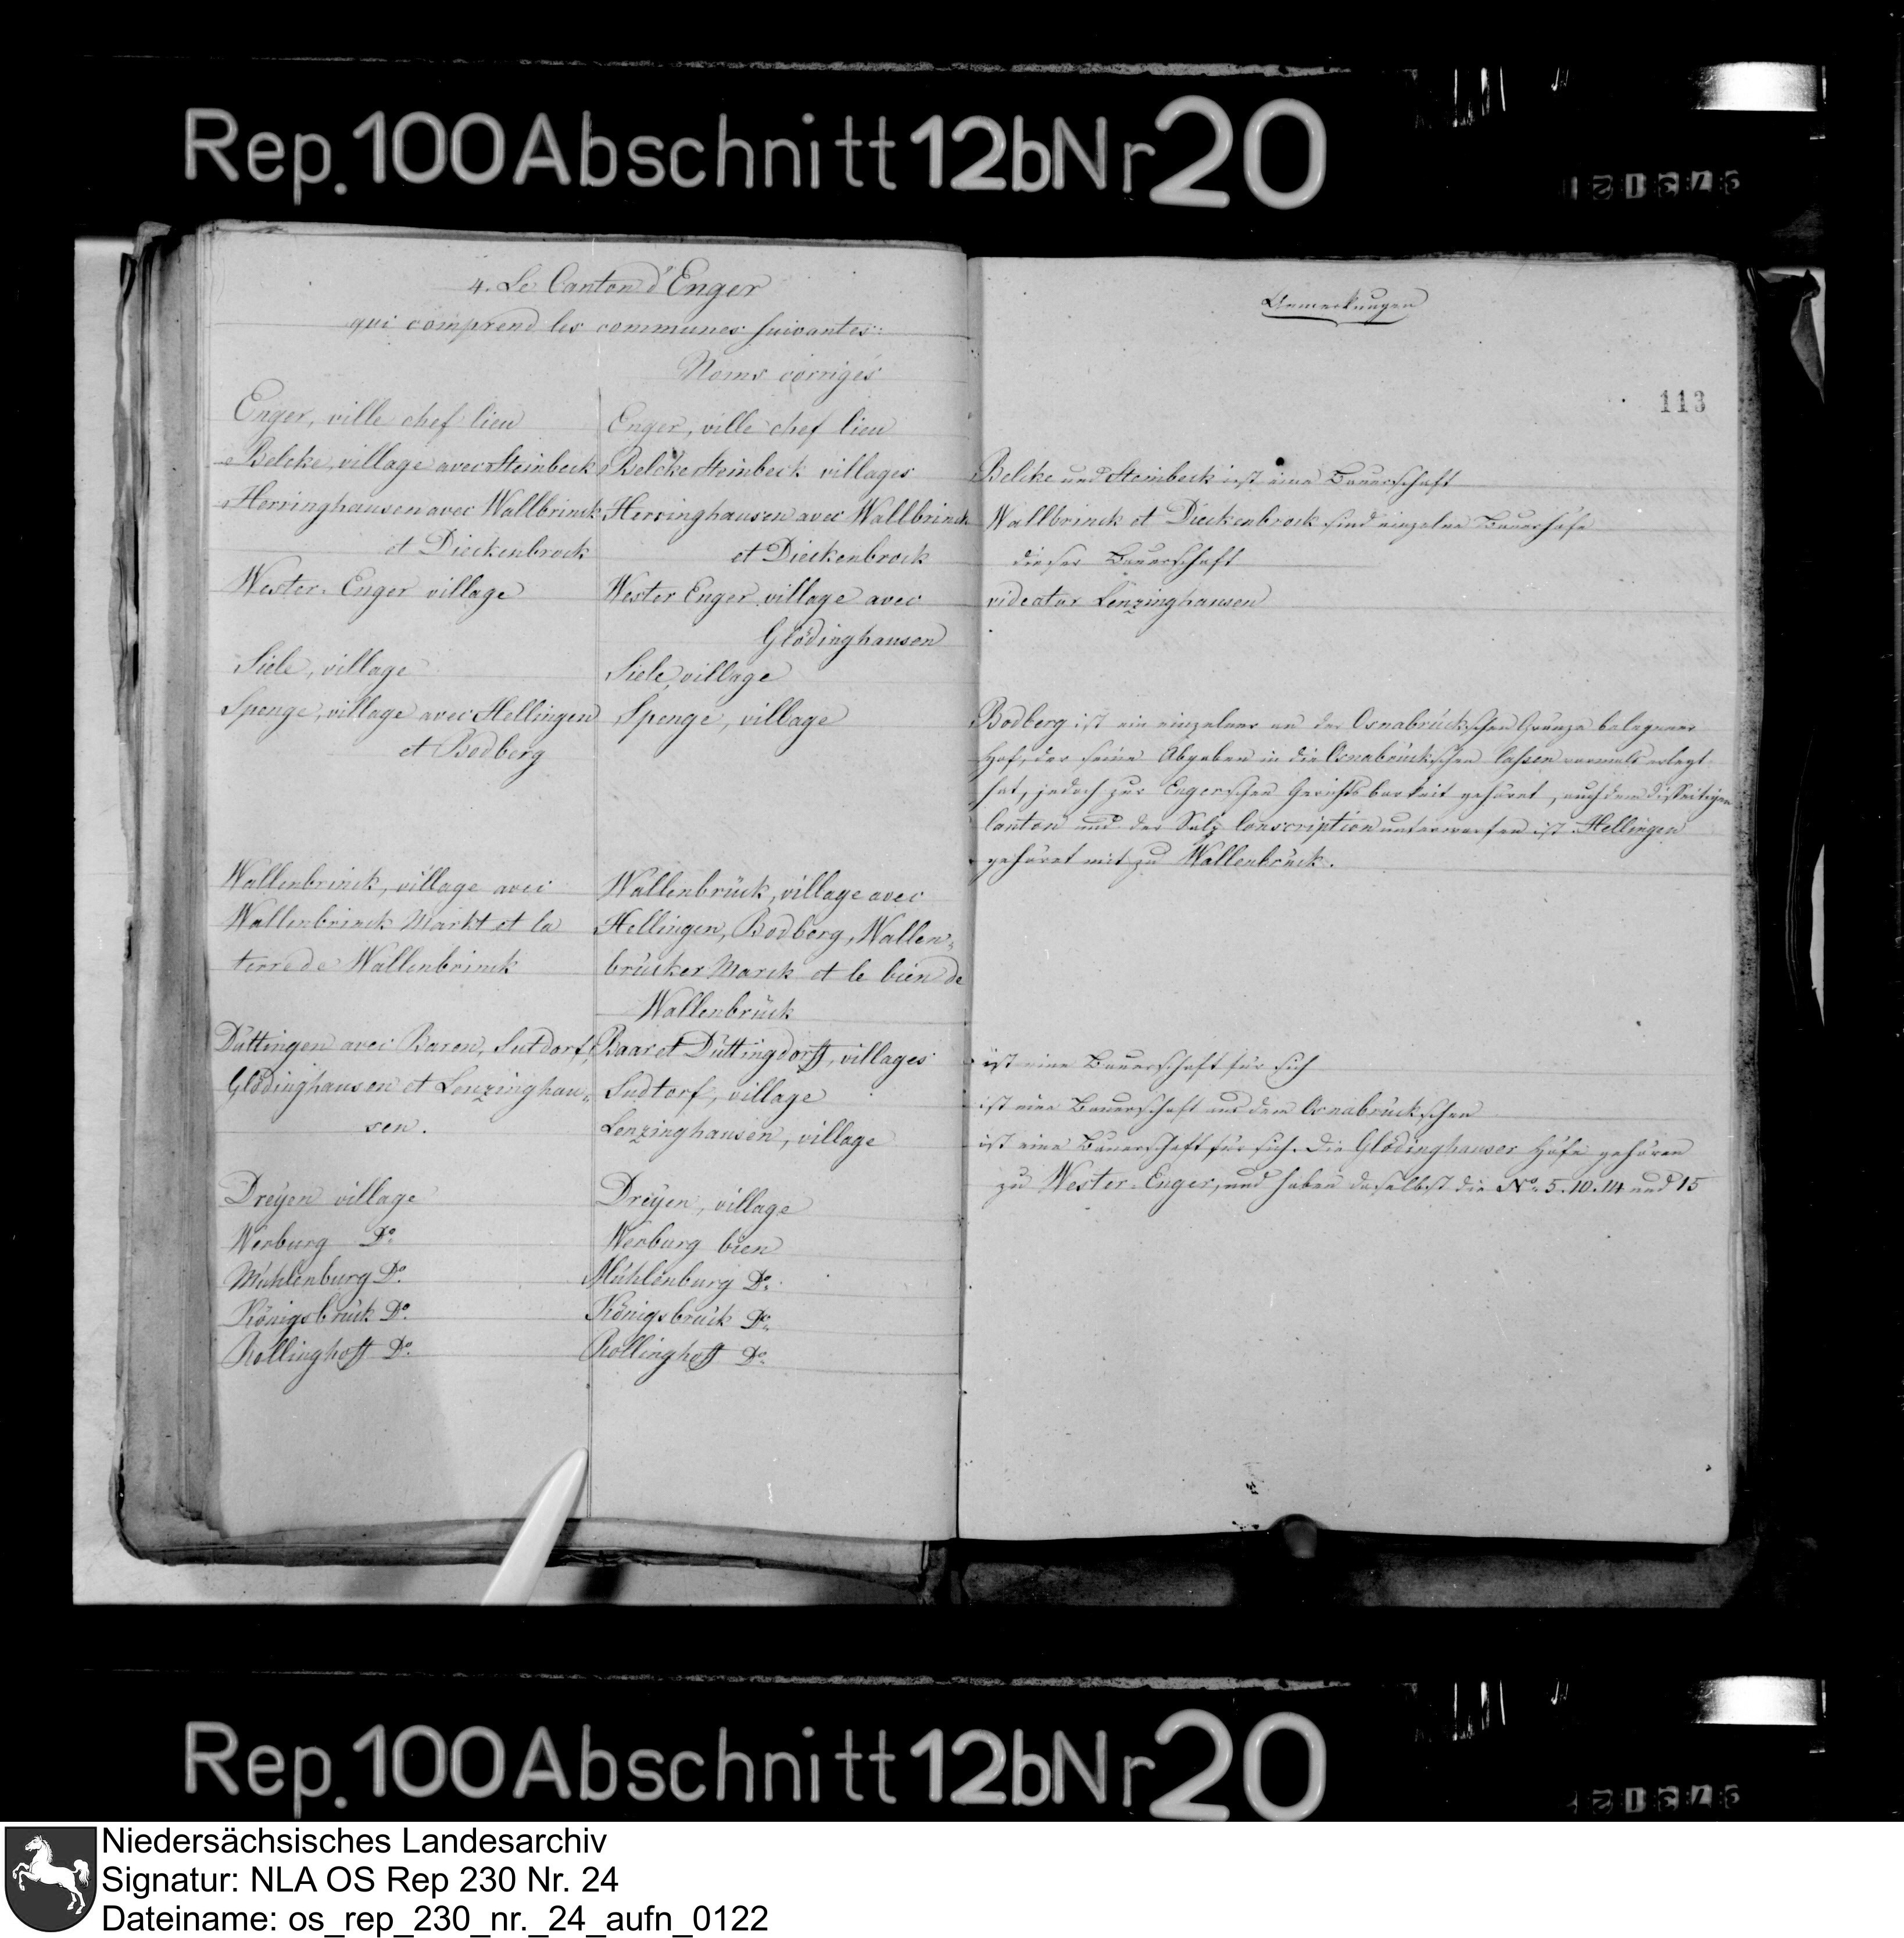 Rep. 100 Abschnitt 12b Nr 20
4. Le Canton d'Enger
qui comprend les communes suivantes:
Noms corrigés
Enger, ville chef lieu
Belcke, village avec Steinbeck
Herringhausen avec Wallbrinck
et Dieckenbrock
Wester-Enger village
Siele, village
Spenge, village avec Hellingen
et Bodberg
Wallenbrinck, village avec
Wallenbrinck Markt et la
terre de Wallenbrinck
Düttingen avec Baren, Sutdorf,
Glödinghausen et Lenzinghau-
sen.
Dreyen village
Werburg Do.
Mühlenburg Do.
Königsbrück Do.
Rollinghoff Do.
Enger, ville chef lieu
Belcke Steinbeck villages
Herringhausen avec Wallbrinck
et Dieckenbrock
Wester Enger, village avec
Glödinghausen
Siele, village
Spenge, village
Wallenbrück, village avec
Hellingen, Bodberg, Wallen-
brücker Marck et le bien de
Wallenbrück
Baar et Düttingdorff, villages
Sudtorf, village
Lenzinghausen, village
Dreyen, village
Werburg bien
Mühlenburg Do.
Königsbrück Do.
Rollinghoff Do.
Anmerkungen
113
Belcke und Steinbeck ist eine Bauerschaft
Wallbrinck et Dieckenbrock sind einzelne Bauerhöfe
dieser Bauerschaft
videatur Lenzinghausen
Bodberg ist ein einzelner an der Osnabrückschen Gränze belegener
Hof, der seine Abgaben in die Osnabrückschen Cassen vormals erlegt
hat, jedoch zur Engerschen Gerichtsbarkeit gehöret, auch dem disseitigen
Canton und der Salz Conscription unterworfen ist. Hellingen
gehöret mit zu Wallenbrück.
ist eine Bauerschaft für sich
ist eine Bauerschaft aus dem Osnabrückschen
ist eine Bauerschaft für sich. Die Glödinghauser Höfe gehören
zu Wester-Enger, und haben daselbst die No. 5. 10. 14 und 15
Rep. 100 Abschnitt 12b Nr 20
Niedersächsisches Landesarchiv
Signatur: NLA OS Rep 230 Nr. 24
Dateiname: os_rep_230_nr._24_aufn_0122